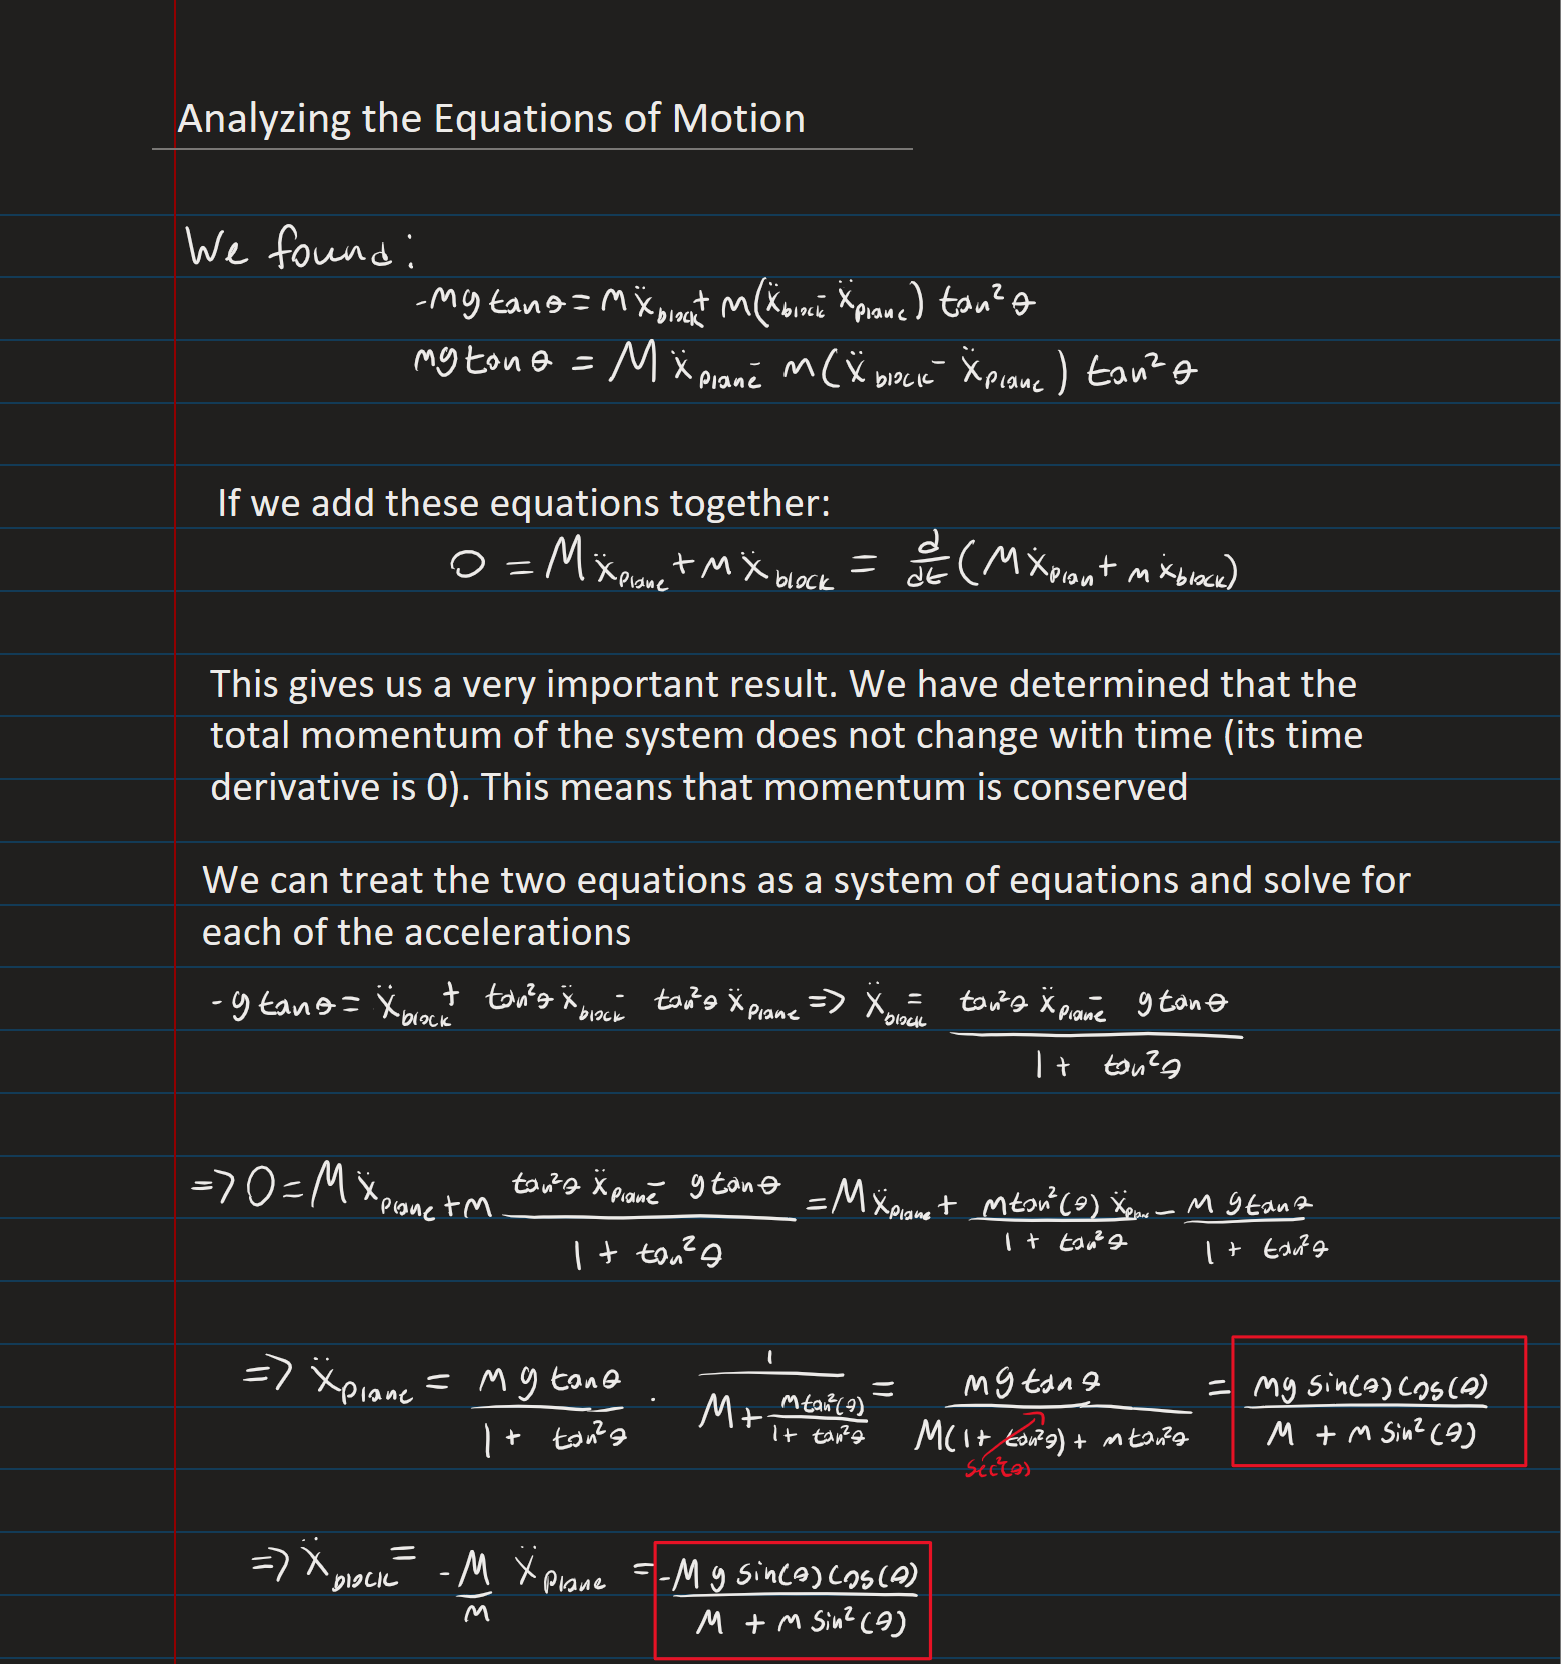 Analyzing the Equations of Motion
We found:
-mg tanθ = mẍ_block + m(ẍ_block - ẍ_plane) tan²θ
mg tanθ = Mẍ_plane - m(ẍ_block - ẍ_plane) tan²θ
If we add these equations together:
0 = Mẍ_plane + mẍ_block = d/dt (Mẋ_plan + mẋ_block)
This gives us a very important result. We have determined that the
total momentum of the system does not change with time (its time
derivative is 0). This means that momentum is conserved
We can treat the two equations as a system of equations and solve for
each of the accelerations
-g tanθ = ẍ_block + tan²θ ẍ_block - tan²θ ẍ_plane => ẍ_block = (tan²θ ẍ_plane - g tanθ)/(1 + tan²θ)
=> 0 = Mẍ_plane + m (tan²θ ẍ_plane - g tanθ)/(1 + tan²θ) = Mẍ_plane + (m tan²(θ) ẍ_plane)/(1 + tan²θ) - (m g tanθ)/(1 + tan²θ)
=> ẍ_plane = (m g tanθ)/(1 + tan²θ) · 1/(M + (m tan²(θ))/(1 + tan²θ)) = (m g tanθ)/(M(1 + tan²θ) + m tan²θ) = (mg sin(θ) cos(θ))/(M + m sin²(θ))
sec²(θ)
=> ẍ_block = -M/m ẍ_plane = (-M g sin(θ) cos(θ))/(M + m sin²(θ))